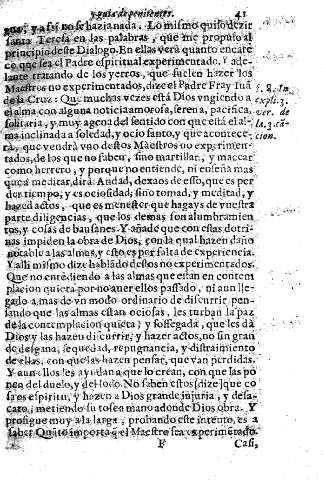 y guia de penitentes. 41
gua, y assi no se haziа nada. Lo mismo quiso dezir
santa Teresa en las palabras, que me propuso al
principio deste Dialogo. En ellas verà quanto encare
ce que sea el Padre espiritual experimentado. Y ade-
lante tratando de los yerros, que suelen hazer los
Maestros no experimentados, dize el Padre Fray Iuā
de la Cruz: Que muchas vezes està Dios vngiendo a
el alma con alguna noticia amorosa, serena, pacifica,
solitaria, y muy agena del sentido con que està el al-
ma inclinada a soledad, y ocio santo, y que acontece-
rà, que vendrà vno destos Maestros no experimen-
tados, de los que no saben, sino martillar, y macear
como herrero, y porque no entiende, ni enseña mas
que a meditar, dirà: Andad, dexaos de esso, que es per-
der tiempo, y es ociosidad; sino tomad, y meditad, y
hazed actos, que es menester que hagays de vuestra
parte diligencias, que los demas son alumbramien-
tos, y cosas de bausanes. Y añade que con estas dotri-
nas impiden la obra de Dios, con la qual hazen daño
notable a las almas, y esto es por falta de experiencia.
Y alli mismo dize hablādo destos no experimentados.
Que no entediendo a las almas que estan en contem
placion quieta por no auer ellos passado, ni aun lle-
gado a mas de vn modo ordinario de discurrir pen-
sando que las almas estan ociosas, les turban la paz
de la contemplacion quieta; y sossegada, que les dà
Dios y las hazen discurrir; y hazer actos, no sin gran
de desgana, sequedad, repugnancia, y distraimiento
de ellas, con que las hazen pensar, que van perdidas.
Y aun ellos les ayudan a que lo crean, con que las po
nen del duelo, y del lodo. No saben estos (dize) que co
sa es espiritu, y hazen a Dios grande injuria, y desa-
cato, metiendo su tosca mano adonde Dios obra. Y
prosigue muy a la larga, probando este intento, es a
saber Quāto importa q̄ el Maestro sea experimētado.
F Casi,
§. 8. In
expli. 3.
ver. de
la. 3. cā-
cion.